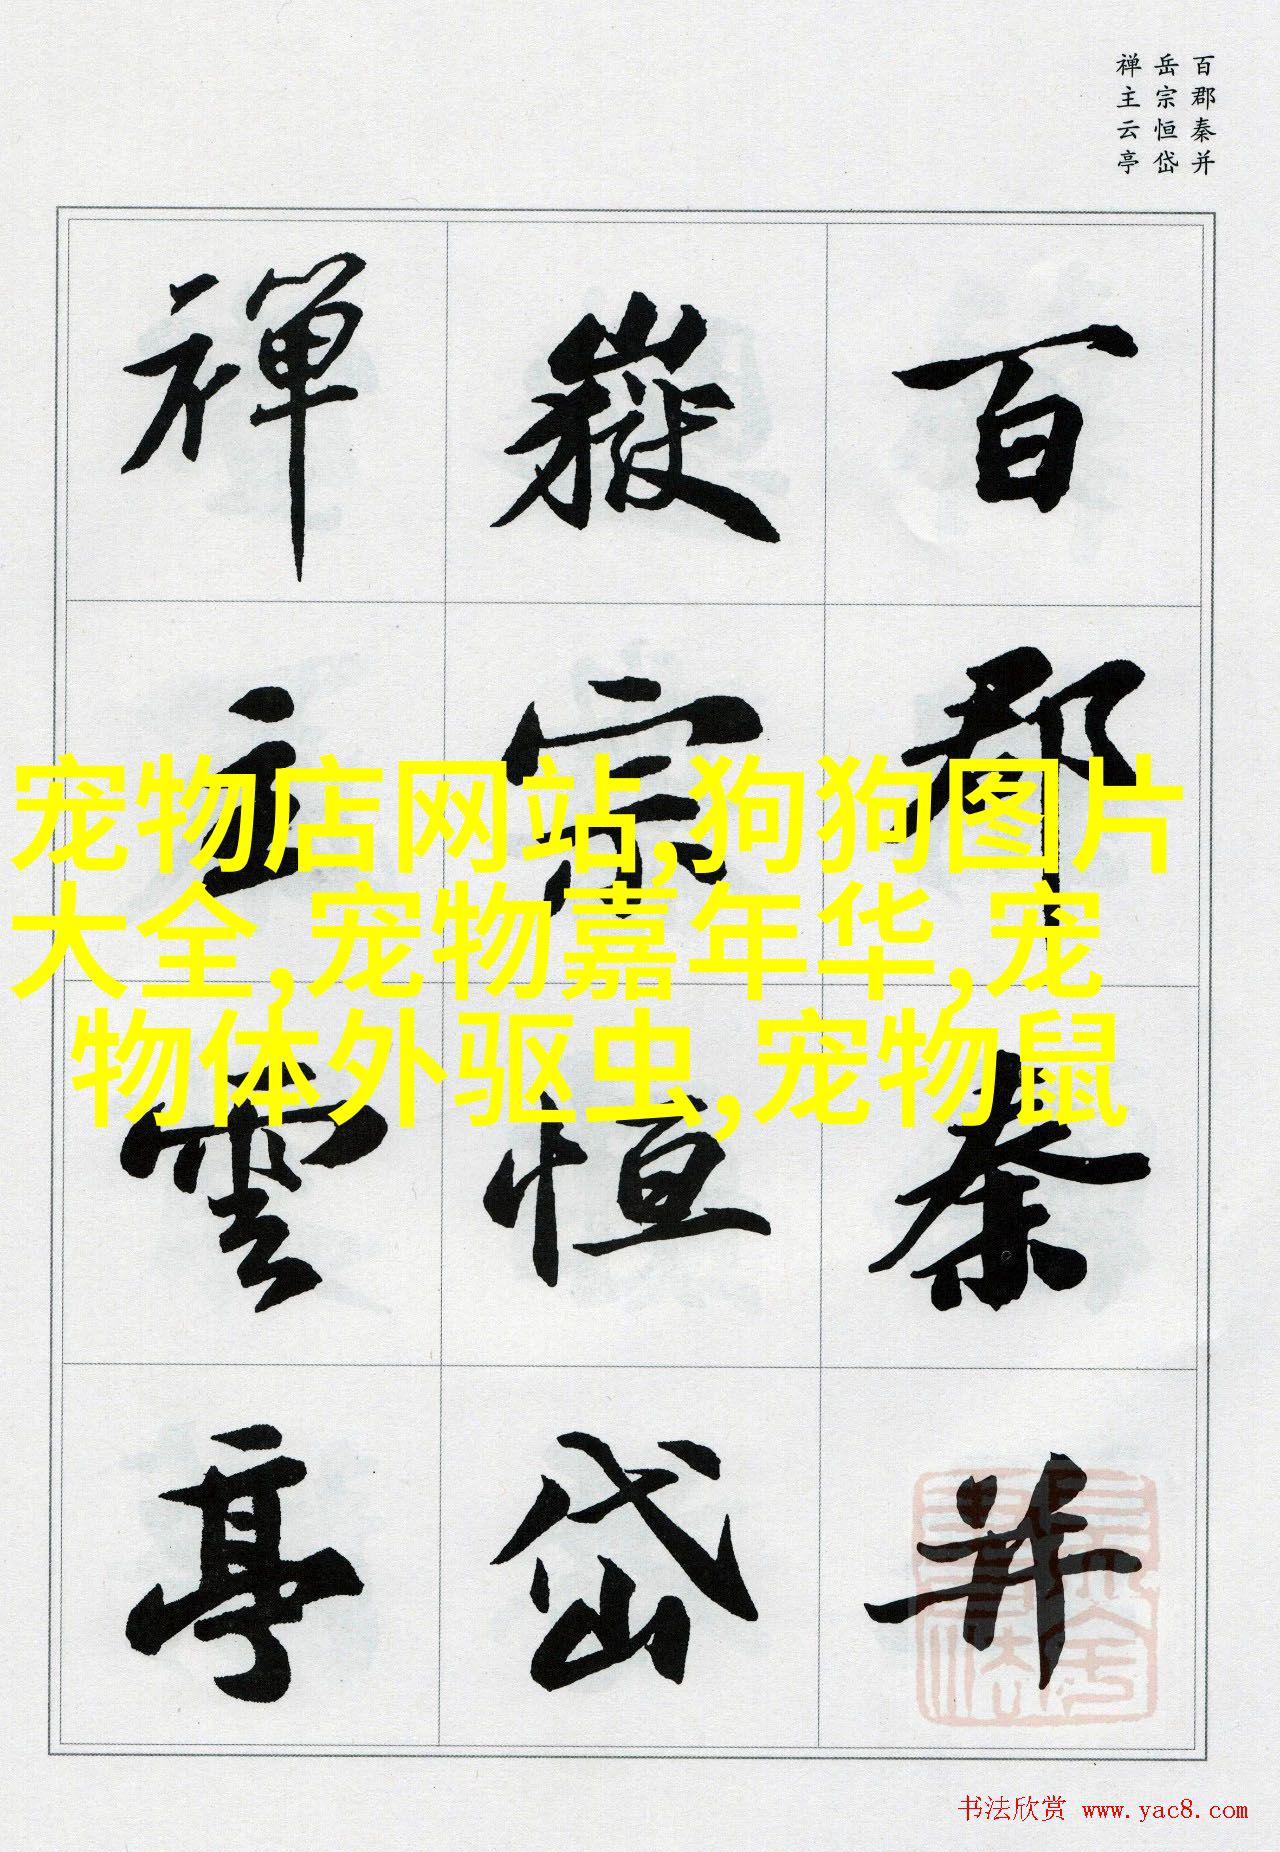 百郡秦并
岳宗恒岱
禅主云亭
百郡秦并
嶽宗恒岱
禪主雲亭
宠物店网站,狗狗图片
大全,宠物嘉年华,宠
物体外驱虫,宠物鼠
书法欣赏 www.yac8.com